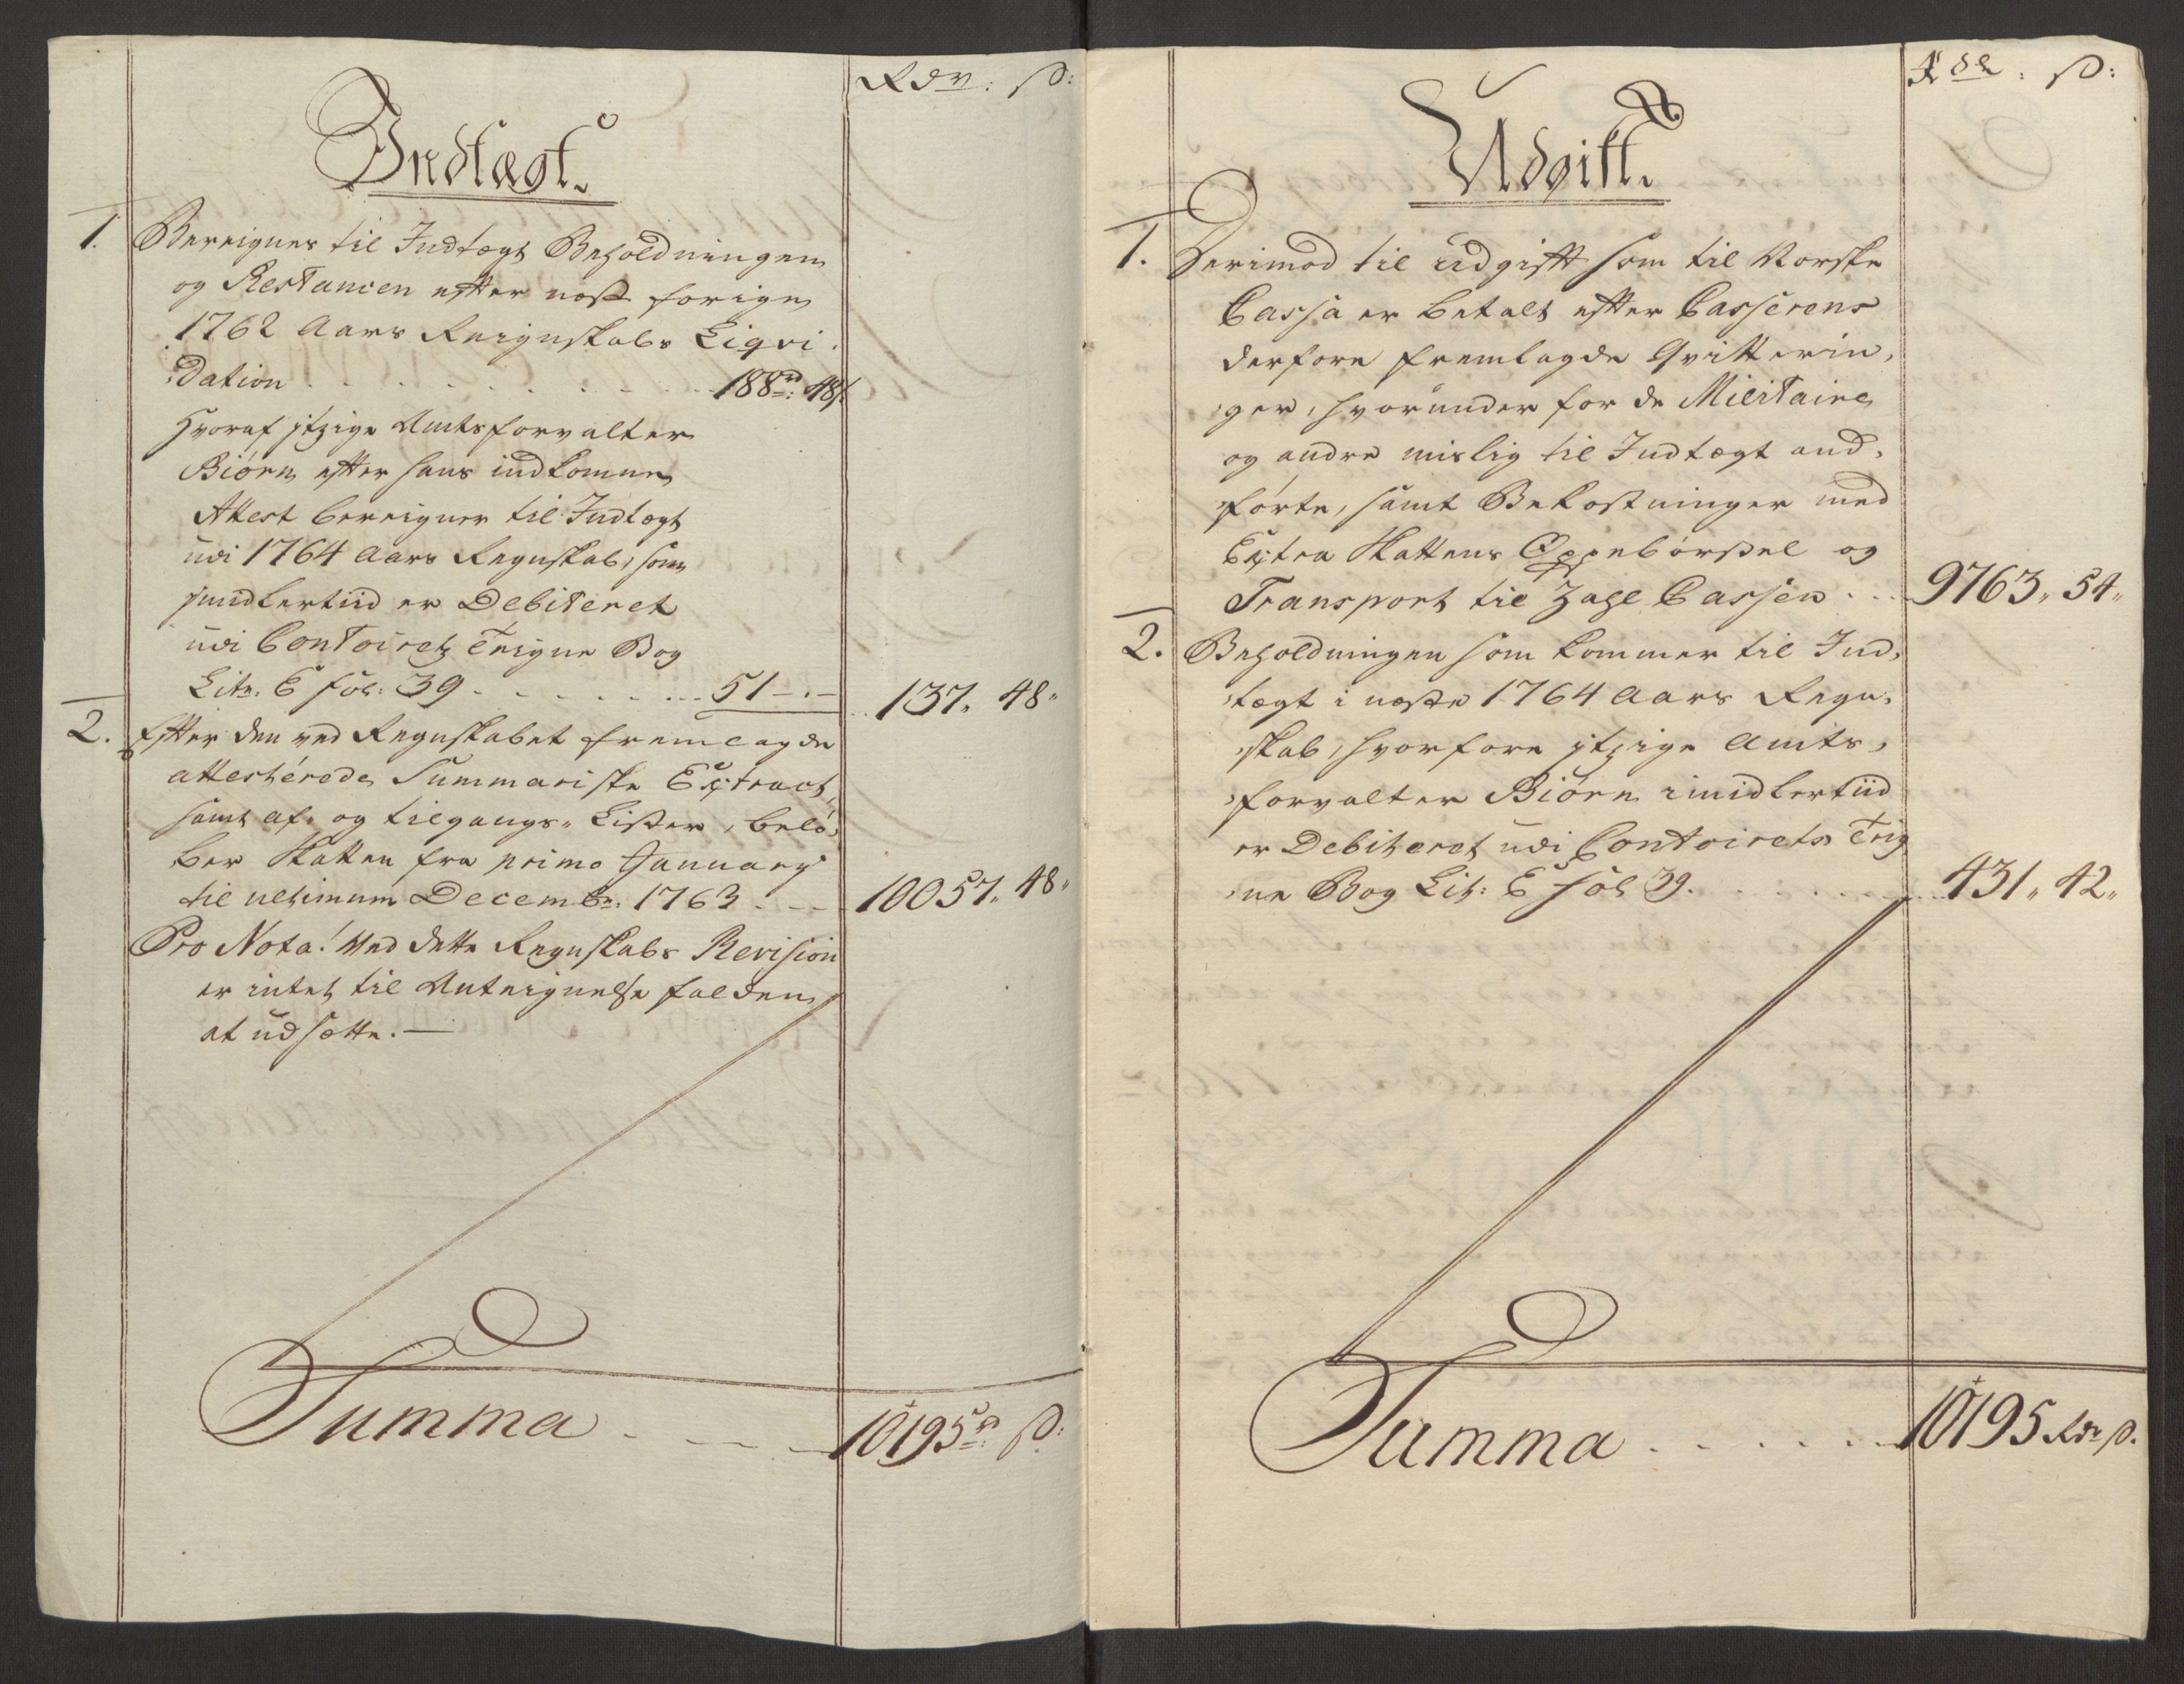 Rdr: ß:
Indtægt.
1. Bereignes til Indtægt Beholdningen
og Restancen efter nest forige
1762 Aars Reignskabs Liqvi
dation . . . 188rd: 48ß
Hvoraf itzige Amtsforvalter
Biórn efter hans indkomne
Attest bereigner til Indtægt
udi 1764 Aars Regnskab, som
imidlertiid er Debiteret
udi Contoiretz Teigne Bog
Litr. E fol: 39 . . . 51 - . - 137. 48.
2. Efter den ved Regnskabet fremlagde
attesterede Summariske Extract
samt af- og tilgangs- Lister, belö-
ber Skatten fra primo January
til ultimum Decembr. 1763 . . . 10057. 48.
Pro Nota! Ved dette Regnskabs Revision
er intet til Anteignelse falden
at udsætte. —
Summa . . . 10195rd: ß:
Rdr: ß:
Udgift.
1. Derimod til Udgift som til Norske
Cassa er betalt efter Casserens
derfore fremlagde Qvitterin-
ger, hvorunder for de Militaire
og andre mislig til Indtægt and-
förte, samt Bekostninger med
Extra Skattens Oppebörsel og
Transport til Zahl Cassen . . . 9763. 54.
2. Beholdningen som kommer til Ind-
tægt i næste 1764 Aars Regn-
skab, hvorfore itzige Amts-
forvalter Biörn imidlertiid
er Debiteret udi Contoirets Teig
ne Bog Lit: E fol 39. . . . 431. 42.
Summa . . . 10195 Rdr ß.